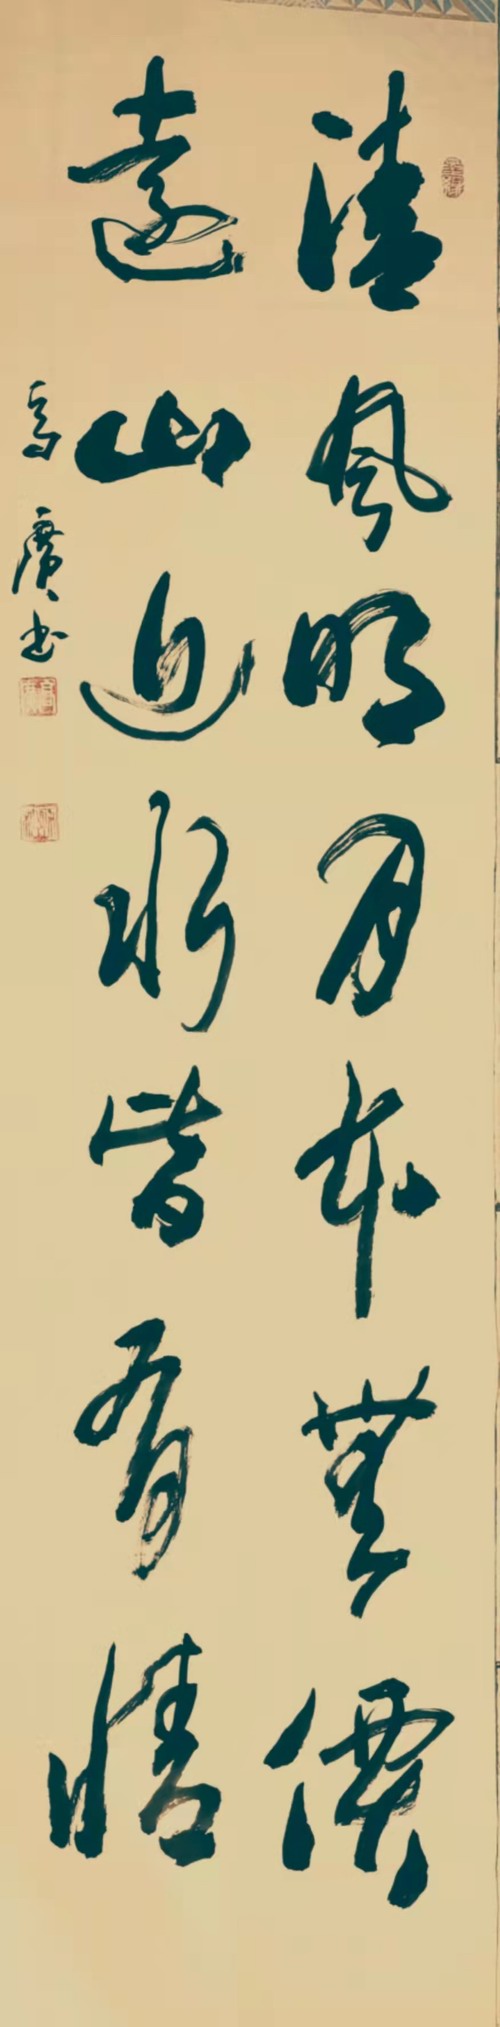 清風明月本無價
遠山近水皆有情
馬廣书